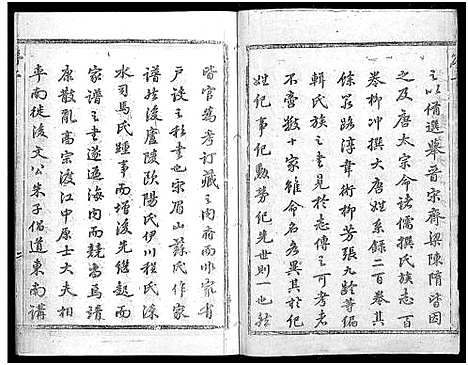 之以備選舉晉宋齊梁陳隋皆因
之及唐太宗命諸儒撰氏族志一百
卷柳冲撰大唐姓系錄二百卷其
條宕路淳韋術柳芳張九齡等編
輯氏族之書見於志傳之可考者
不啻數十家雖命名異其於紀
姓紀事紀勳勞紀先世則一也然
皆官爲考訂藏之內府而非家有
戶設之種書也宋眉山蘇氏作家
譜嗣後廬陵歐陽氏伊川程氏涑
水司馬氏踵事而增後先繼起而
家譜之書遂遍海內而競爲靖
康散亂高宗渡江中原士大夫相
率南徙後文公朱子倡道東南講